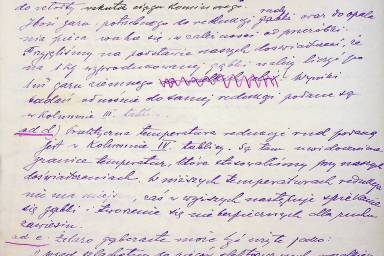 do retorty reduku ciągu kominowego. redy
Ilość gazu potrzebnego do redukcji gąbki oraz do opala
nia pieca waha się w zależności od przeróbki.
Przyjęliśmy na podstawie naszych doświadczeń, że
na 1 kg wyprodukowanej gąbki należy liczyć go
1m³ gazu ziemnego Wyniki
badań odnośnie do samej redukcji podane są
w kolumnie III. tablicy.
ad d) Praktyczna temperatura redukcji rud podana
jest w Kolumnie IV. tablicy. Są tam uwidocznione
granice temperatur, które stosowaliśmy przy naszych
doświadczeniach. W niższych temperaturach redukcja
nie ma miejsca, zaś w wyższych następuje spiekanie
się gąbki i tworzenie się niebezpiecznych dla ruchu
zawiesin.
ad e. Żelazo gąbczaste może być użyte jako:
wsad